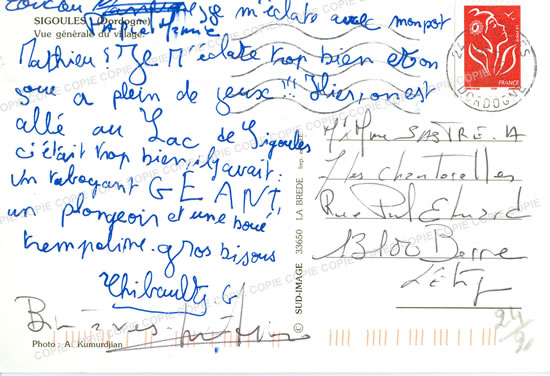 SIGOULES (Dordogne)
Vue générale du village.
coucou
Papi et Mamie
Je m'éclate avec mon pot
Mathieu! Je m'éclate trop bien et on
joue a plein de jeux!!! Hier, on est
allé au Lac de Sigoules
c'était trop bien, il y avait:
Un tobogant GEANT,
un plongeoir et une boué
trempoline. gros bisous
Thibault G
Photo : A. Kumurdjian
© SUD-IMAGE 33650 LA BREDE
FRANCE
DORDOGNE
M. Mme SASTRE. A
Les chanterelles
Rue Paul Eluard
13100 Berre
L'étg
COPIE COPIE COPIE